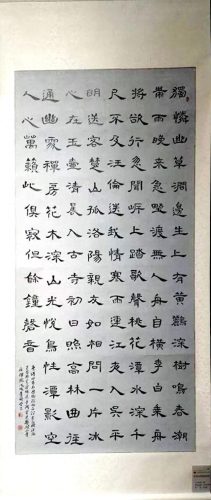 獨憐幽草澗邊生上有黄鸝深樹鳴春潮
帶雨晚来急野渡無人舟自横李白乘舟
將欲行忽聞岸上踏歌聲桃花潭水深千
尺不及汪倫送我情寒雨連江夜入吳平
明送客楚山孤洛陽親友如相問一片冰
心在玉壺清晨入古寺初日照高林曲徑
通幽處禪房花木深山光悦鳥性潭影空
人心萬籟此俱寂但餘鐘磬音